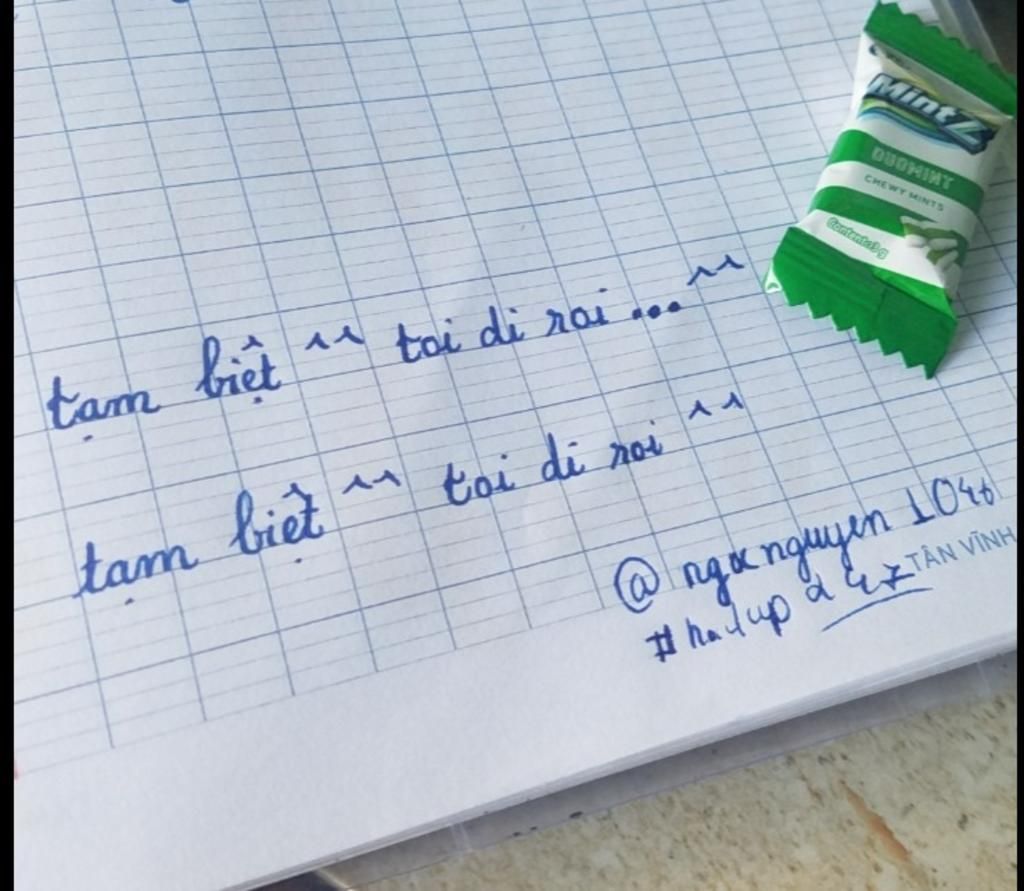 MintZ
DUOMINT
CHEWY MINTS
Content:3g
tạm biệt ^^ toi di roi ... ^^
tạm biệt ^^ toi di roi ^^
@ngocnguyen 1046
TÂN VĨNH